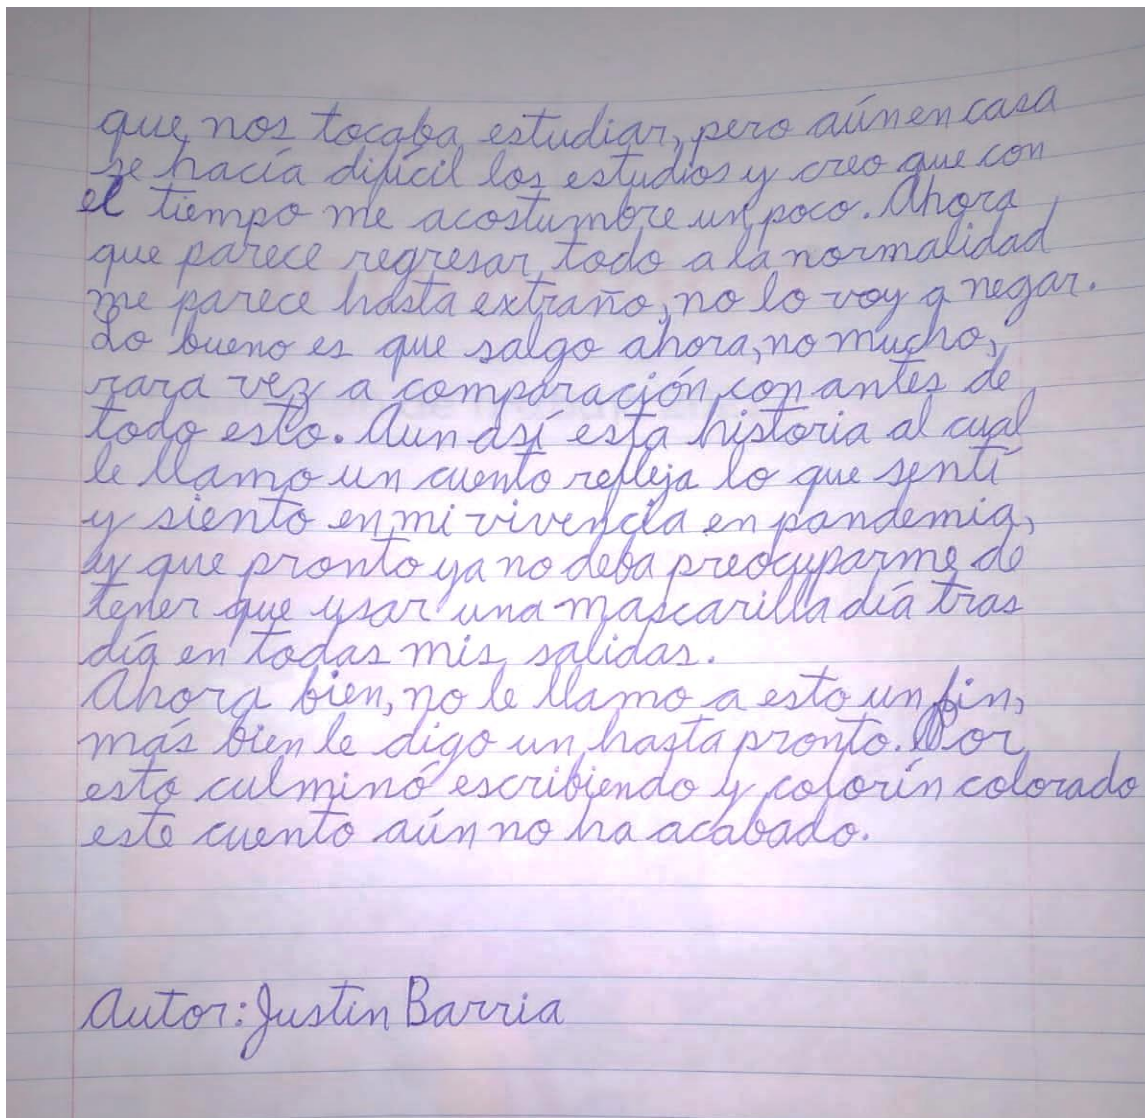 que nos tocaba estudiar, pero aún en casa
se hacía difícil los estudios y creo que con
el tiempo me acostumbre un poco. Ahora
que parece regresar todo a la normalidad
me parece hasta extraño, no lo voy a negar.
Lo bueno es que salgo ahora, no mucho,
rara vez a comparación con antes de
todo esto. Aun así esta historia al cual
le llamo un cuento refleja lo que sentí
y siento en mi vivencia en pandemia,
y que pronto ya no deba preocuparme de
tener que usar una mascarilla día tras
día en todas mis salidas.
Ahora bien, no le llamo a esto un fin,
más bien le digo un hasta pronto. Por
esto culminó escribiendo y colorín colorado
este cuento aún no ha acabado.
Autor: Justin Barria